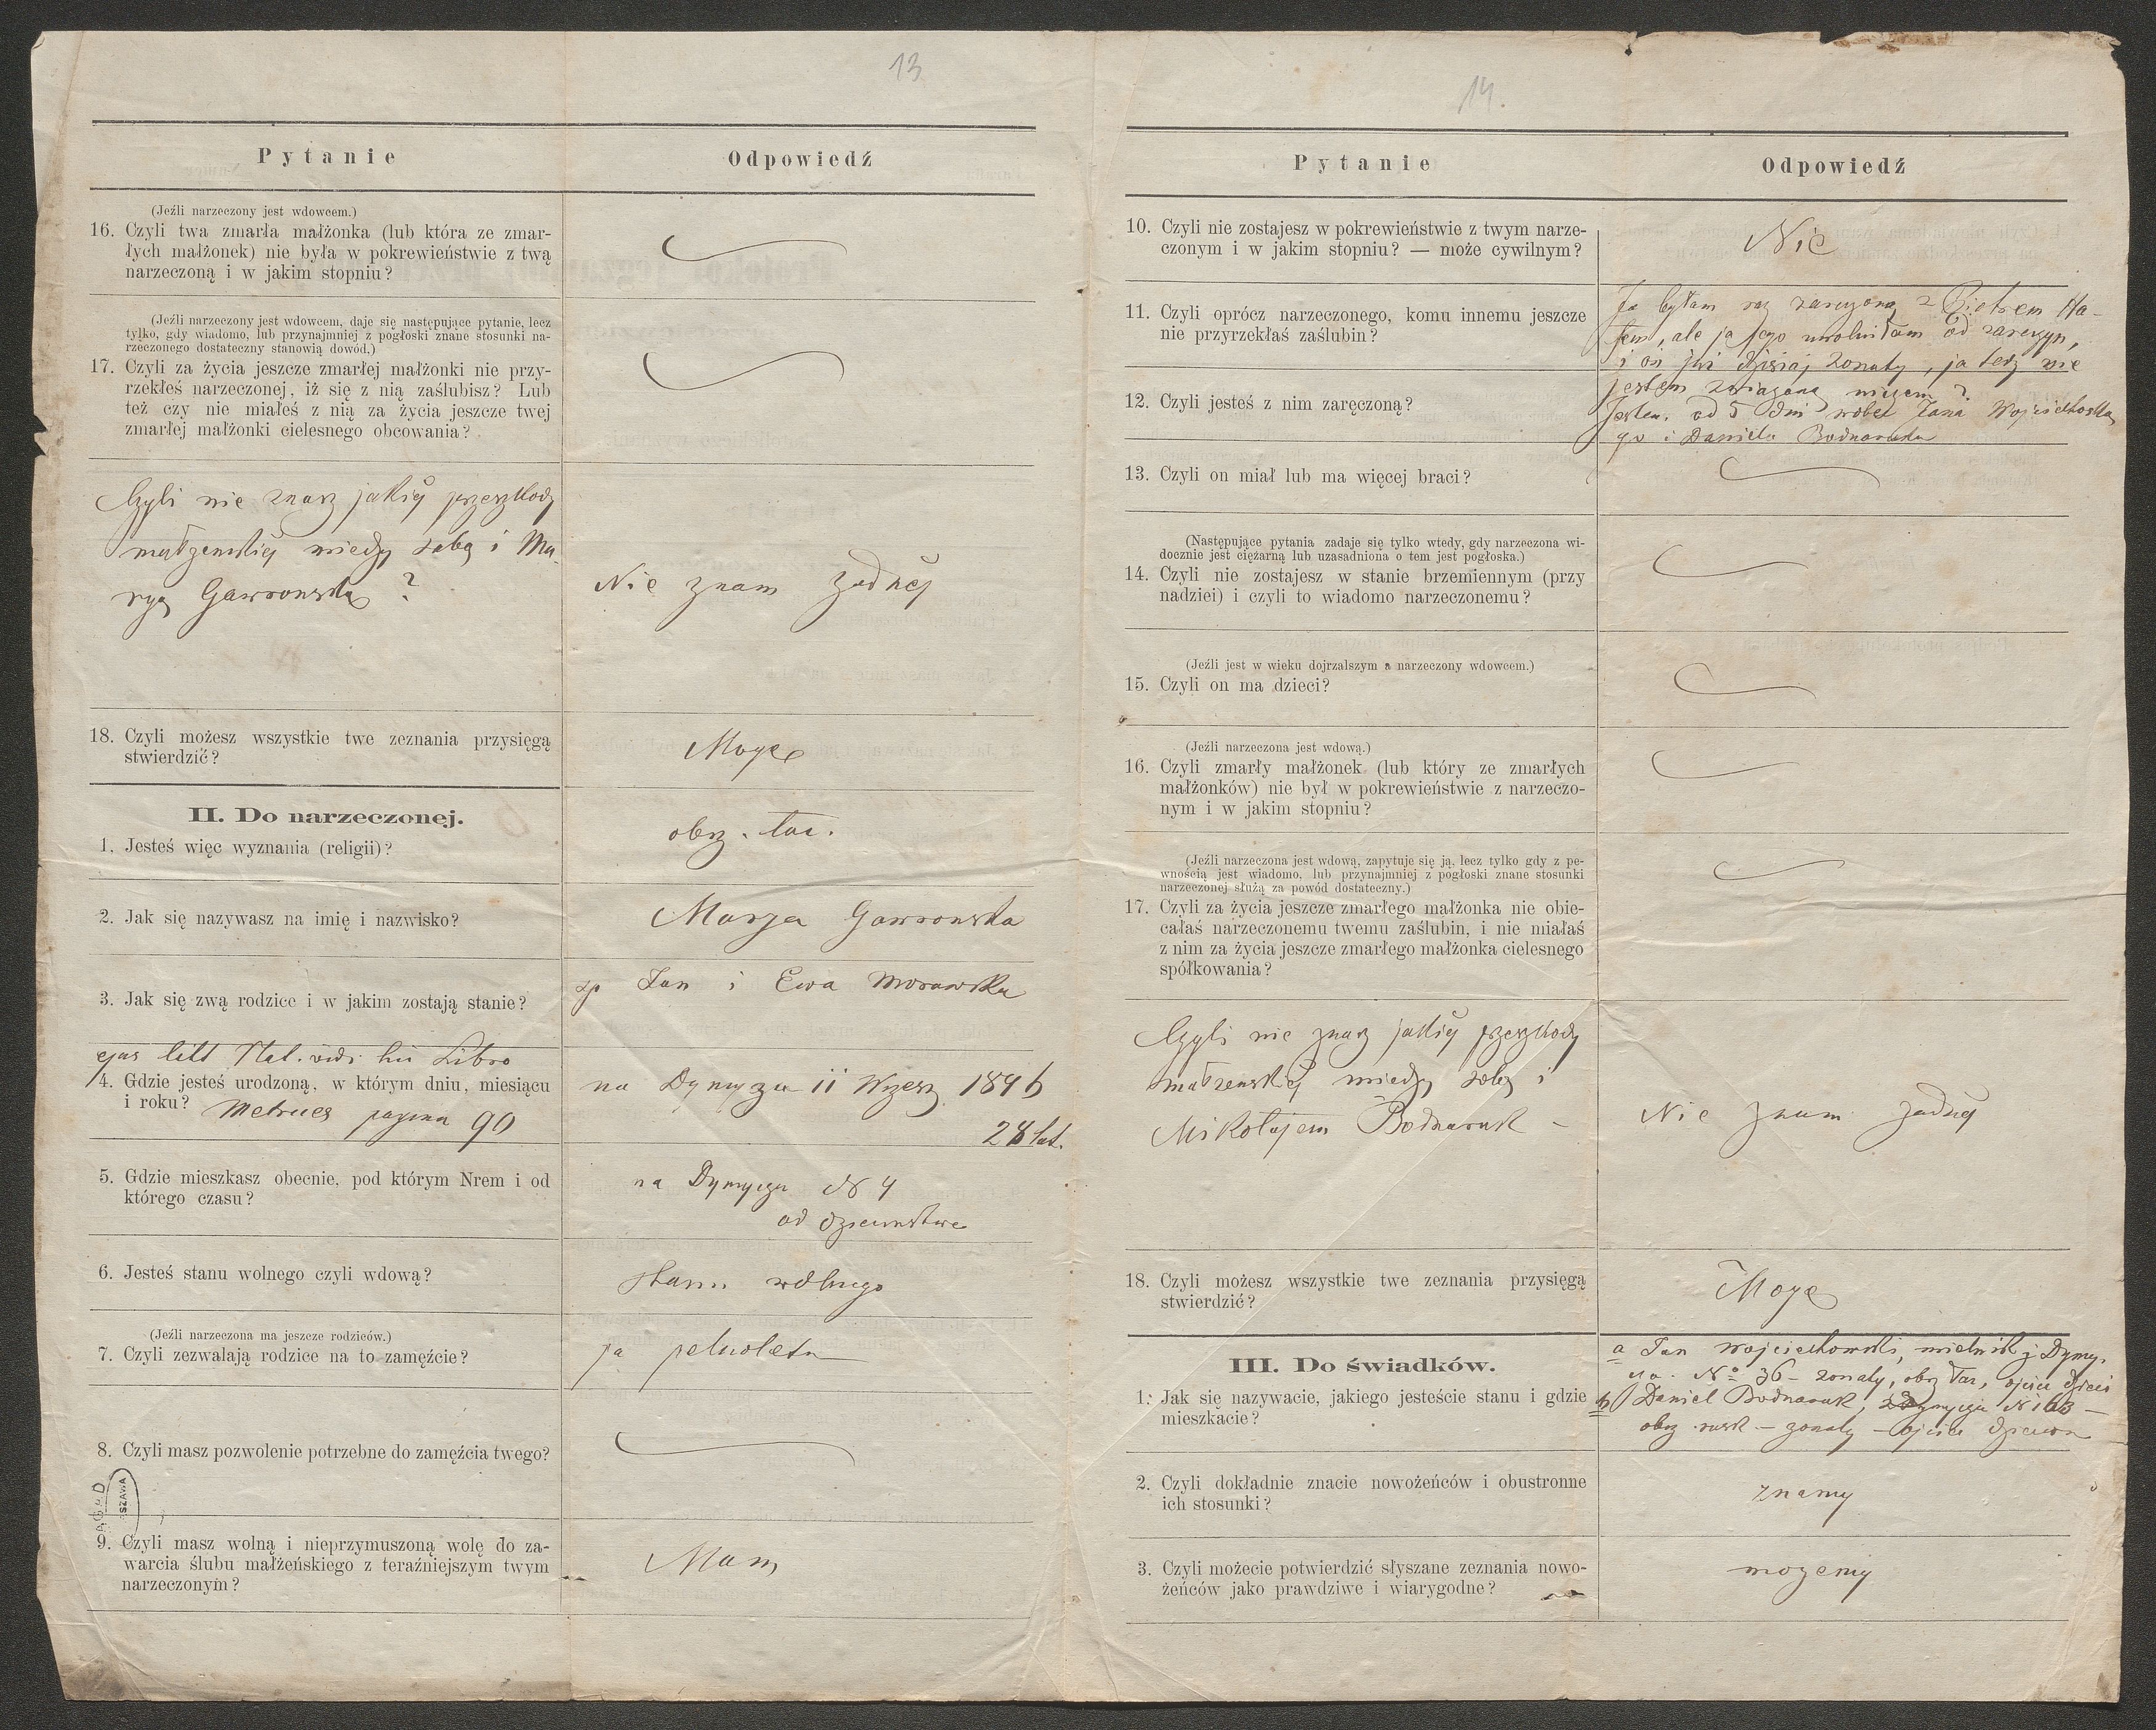 13
Pytanie
Odpowiedź
(Jeźli narzeczony jest wdowcem.)
16. Czyli twa zmarła małżonka (lub która ze zmar-
łych małżonek) nie była w pokrewieństwie z twą
narzeczoną i w jakim stopniu?
(Jeźli narzeczony jest wdowcem, daje się następujące pytanie, lecz
tylko, gdy wiadomo, lub przynajmniej z pogłoski znane stosunki na-
rzeczonego dostateczny stanowią dowód.)
17. Czyli za życia jeszcze zmarłej małżonki nie przy-
rzekłeś narzeczonej, iż się z nią zaślubisz? Lub
też czy nie miałeś z nią za życia jeszcze twej
zmarłej małżonki cielesnego obcowania?
Czyli nie znasz jakiej przeszkody
małżenskiej miedzy sobą i Ma-
ryą Gawronską?
Nie znam żadnej
18. Czyli możesz wszystkie twe zeznania przysięgą
stwierdzić?
Mogę
II. Do narzeczonej.
1. Jesteś więc wyznania (religii)?
obrz. łac.
2. Jak się nazywasz na imię i nazwisko?
Marya Gawronska
3. Jak się zwą rodzice i w jakim zostają stanie?
Jan i Ewa Morawska
4. Gdzie jesteś urodzoną, w którym dniu, miesiącu
i roku? pagina 90
na Dymyczu 11 Wrzesz 1896
28 lat.
5. Gdzie mieszkasz obecnie, pod którym Nrem i od
którego czasu?
na Dymyczu N 4
od dziecinstwa
6. Jesteś stanu wolnego czyli wdową?
Stanu wolnego
(Jeźli narzeczona ma jeszcze rodziców.)
7. Czyli zezwalają rodzice na to zamęźcie?
ja pełnoletn
8. Czyli masz pozwolenie potrzebne do zamęźcia twego?
9. Czyli masz wolną i nieprzymuszoną wolę do za-
warcia ślubu małżeńskiego z teraźniejszym twym
narzeczonym?
Mam
14.
Pytanie
Odpowiedź
10. Czyli nie zostajesz w pokrewieństwie z twym narze-
czonym i w jakim stopniu? — może cywilnym?
Nie
11. Czyli oprócz narzeczonego, komu innemu jeszcze
nie przyrzekłaś zaślubin?
Ja byłam raz zaręczoną z Piotrem Ha-
łem, ale ja jego uwolniłam od zaręczyn,
i on już dzisiaj żonaty, ja tedy nie
jestem związaną niczem
12. Czyli jesteś z nim zaręczoną?
Jestem. od 5 dni wobec Jana Wojciechowskie
go i Daniela Bodnaruka
13. Czyli on miał lub ma więcej braci?
(Następujące pytania zadaje się tylko wtedy, gdy narzeczona wi-
docznie jest ciężarną lub uzasadniona o tem jest pogłoska.)
14. Czyli nie zostajesz w stanie brzemiennym (przy
nadziei) i czyli to wiadomo narzeczonemu?
(Jeźli jest w wieku dojrzalszym a narzeczony wdowcem.)
15. Czyli on ma dzieci?
(Jeźli narzeczona jest wdową.)
16. Czyli zmarły małżonek (lub który ze zmarłych
małżonków) nie był w pokrewieństwie z narzeczo-
nym i w jakim stopniu?
(Jeźli narzeczona jest wdową, zapytuje się ją, lecz tylko gdy z pe-
wnością jest wiadomo, lub przynajmniej z pogłoski znane stosunki
narzeczonej służą za powód dostateczny.)
17. Czyli za życia jeszcze zmarłego małżonka nie obie-
całaś narzeczonemu twemu zaślubin, i nie miałaś
z nim za życia jeszcze zmarłego małżonka cielesnego
spółkowania?
Czyli nie znasz jakiej przeszkody
małżenskiej miedzy sobą i
Mikołajem Bodnaruk —
Nie znam żadnej
18. Czyli możesz wszystkie twe zeznania przysięgą
stwierdzić?
Mogę
III. Do świadków.
1. Jak się nazywacie, jakiego jesteście stanu i gdzie
mieszkacie?
a Jan Wojciechowski, mielnik z Dymy-
cza. No 36 - żonaty, obrz łac, ojciec dzieci
b Daniel Bodnaruk, z Dymycza N 163 —
obrz. rusk — żonaty — ojciec
2. Czyli dokładnie znacie nowożeńców i obustronne
ich stosunki?
znamy
3. Czyli możecie potwierdzić słyszane zeznania nowo-
żeńców jako prawdziwe i wiarygodne?
mozemy